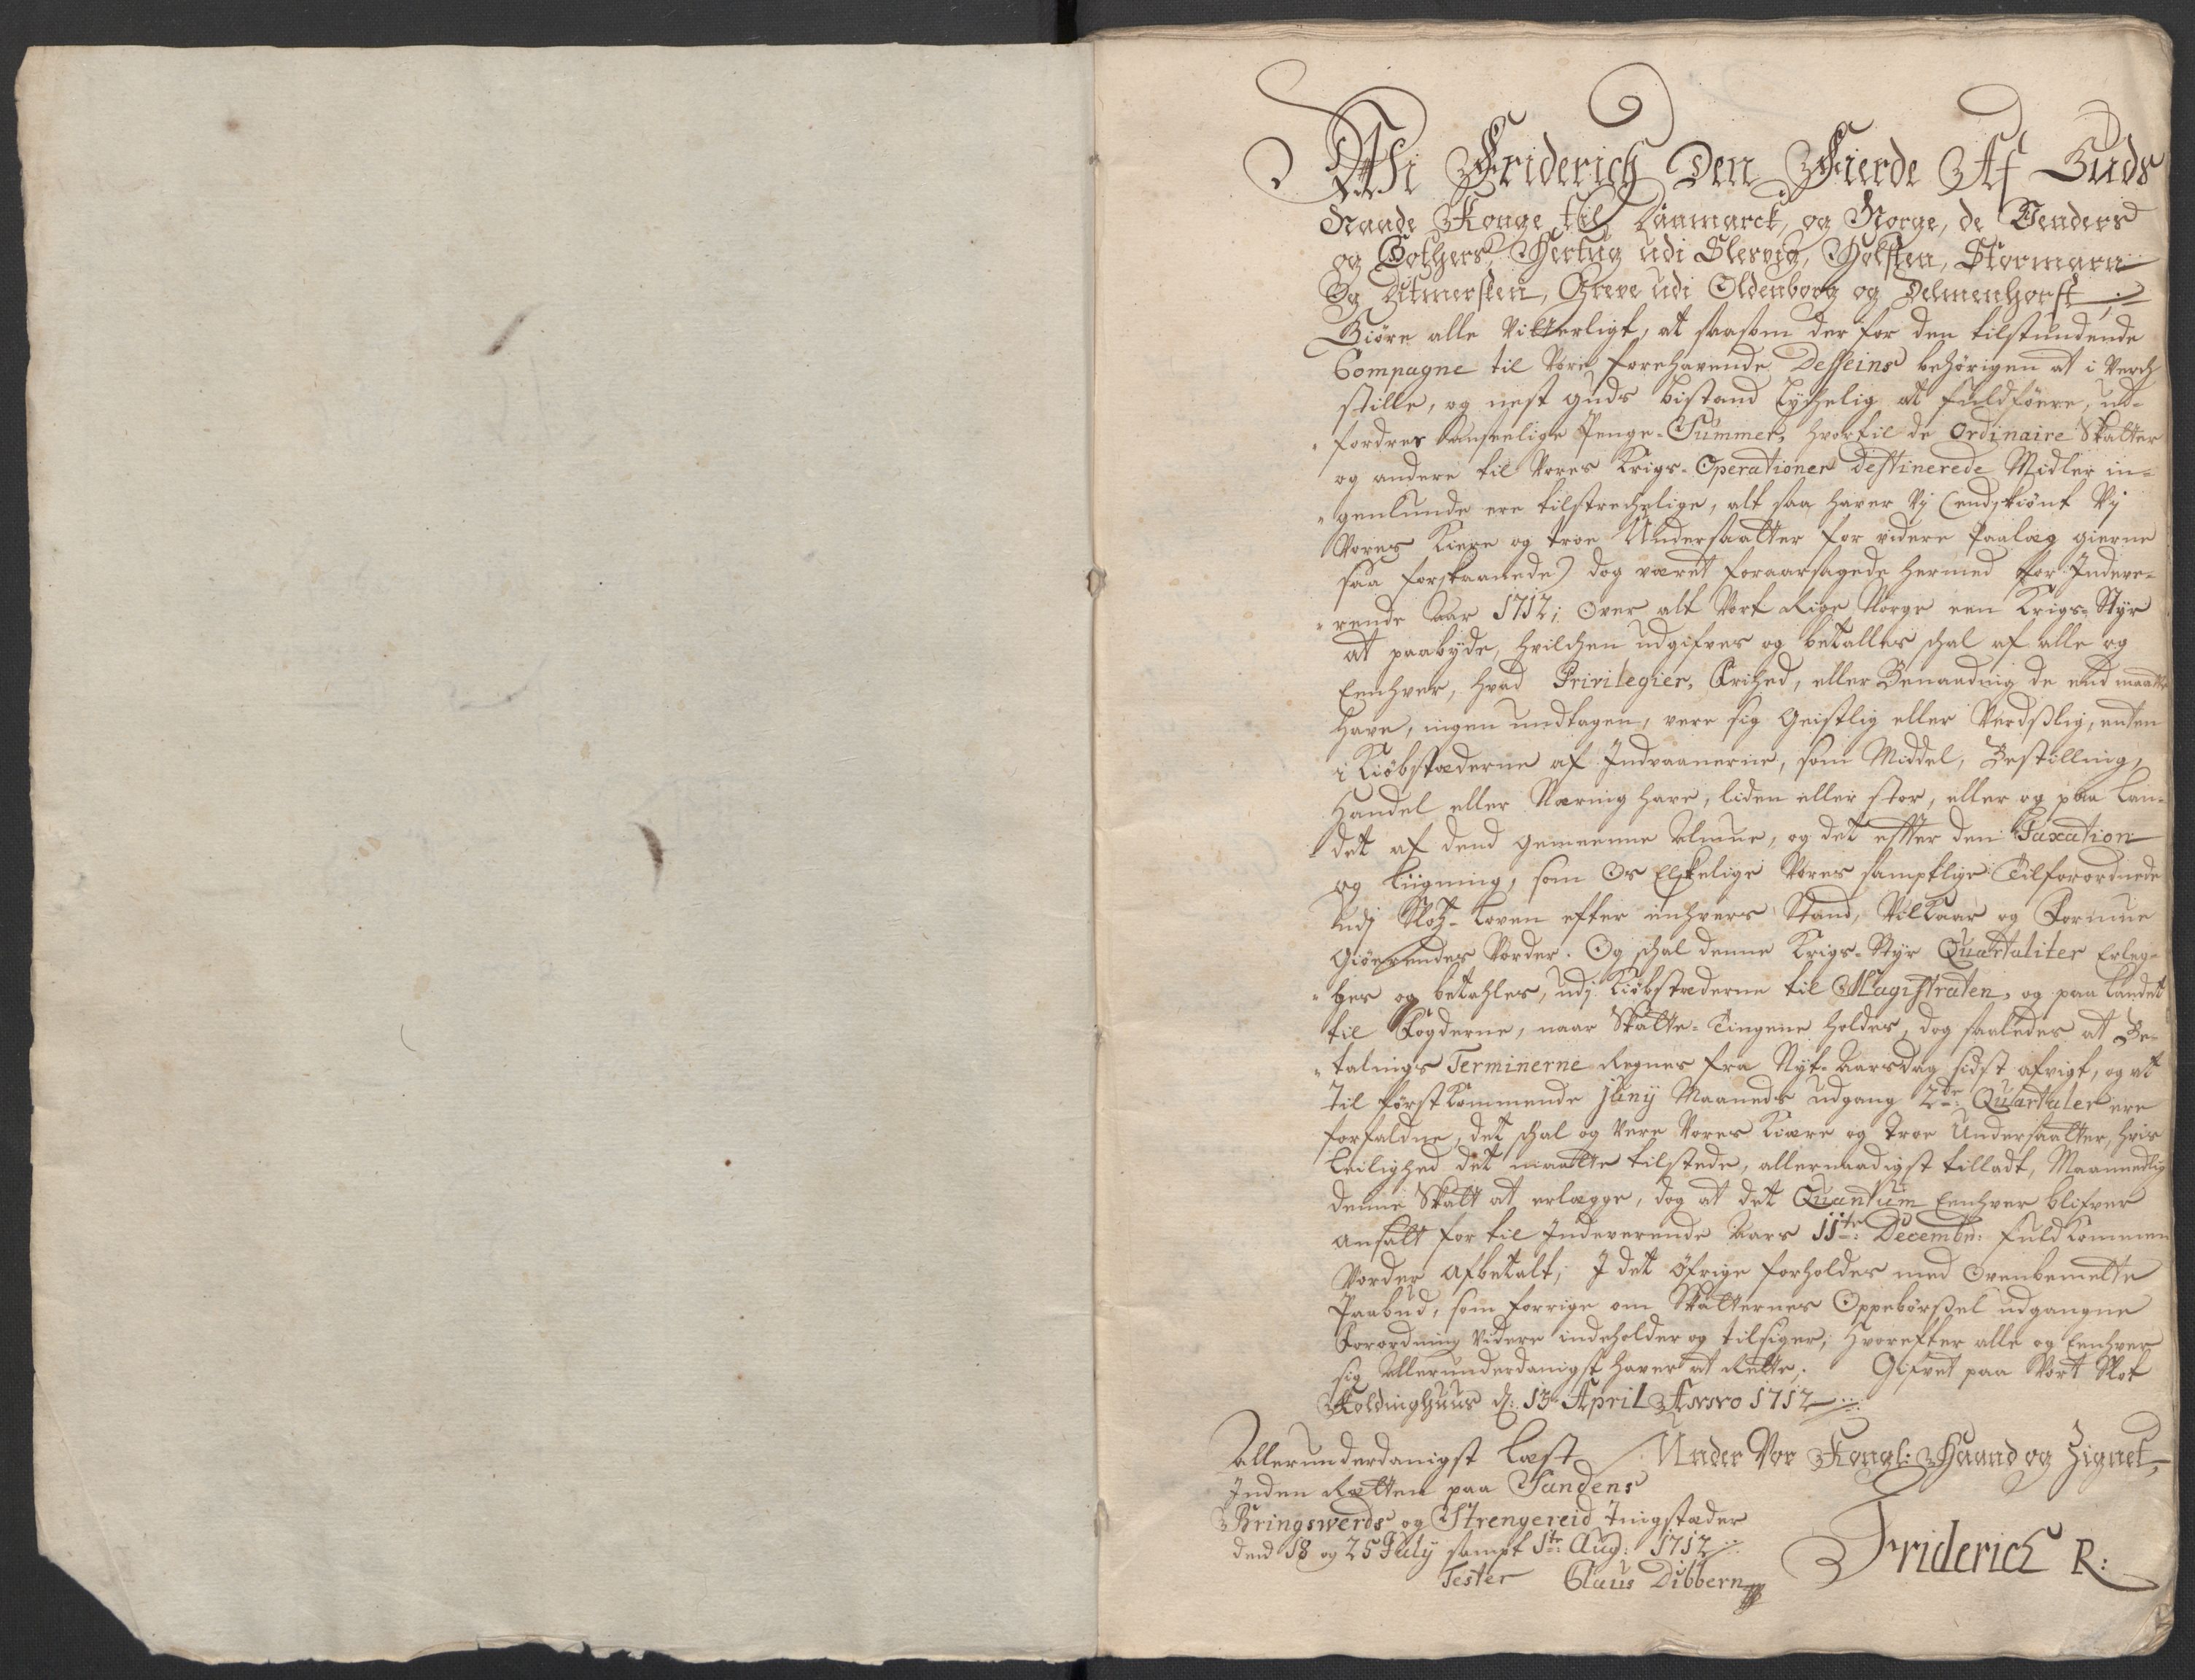 Wii Friderich Den Fierde Af Guds
Naade Konge til Danmarck, og Norge, de Venders
og Gothers, Hertug udi Slesvig, Holsten, Stormarn
Og Ditmersken, Greve udi Oldenborg og Delmenhorst ;
Giøre alle Vitterligt, at saasom der for den tilstundende
Campagne til Vore forehavende Desseins behørigen at i Verch
stille, og nest Guds bistand lychelig at fuldføere, ud-
fordres ansenlige Penge-Summer, hvortil de Ordinaire Skatter
og andere til Vores Krigs-Operationer destinerede Midler in-
genlunde ere tilstrechelige, alt saa haver Vj (endskiønt Vj
Vores Kiere og troe Undersaatter for videre Paalæg gierne
saa forskaanede) dog været foraarsagede hermed for Indeve-
rende Aar 1712; over alt Vort Rige Norge een Krigs-Styr
at paabyde, hvilchen udgifves og betalles schal af alle og
Eenhver, hvad Privilegier, Frihed, eller Benaadnig de end maatte
have, ingen undtagen, vere sig Geistlig eller Verdslig, enten
i Kiøbstæderne af Indvaanerne, som Middel, Bestilling,
Handel eller Næring have, liden eller stor, eller og paa Lan-
det af dend gemeenne Almue, og det effter den Taxation
og Liigning, som Os Elskelige Vores samptlige Tilforordnede
udj Slotz-Loven efter enhvers Stand, Vilkaar og Formue
giørendes Vorder. Og schal denne Krigs-Styr Quartaliter Erleg-
ges og betahles, udj Kiøbstæderne til Magistraten, og paa Landet
til Fogderne, naar Skatte-Tingene holdes, dog saaledes at Be-
talings Terminerne Regnes fra Nyt-Aarsdag sidst afvigt, og at
til førstkommende Juny Maaneds udgang 2de Quartaler ere
forfaldne, det schal og Vere Vores Kiære og troe Undersaatter, hvis
Leilighed det maatte tilstede, allernaadigst tilladt, Maanedlig
denne Skatt at erlægge, dog at det Quantum Eenhver blifver
ansatt for til Indeverende Aars 11te Decembr: fuldkommen
Vorder afbetalt; I det øfrige forholdes med ovenbemelte
Paabud, som forrige om Skatternes Oppebørsel udgangne
Forordning videre indeholder og tilsiger; Hvorefter alle og Eenhver
sig Allerunderdanigst haver at Rette. Gifvet paa Vort Slot
Koldinghuus d: 13 April Anno 1712
Under Vor Kongl: Haand og Zignet,
Friderich R:
Allerunderdanigst Læst
Inden Retten paa Sandens
Bringsverds og Strengereid Tingstæder
dend 18 og 25 July sampt 1te Aug: 1712
Tester Claus Dibbern